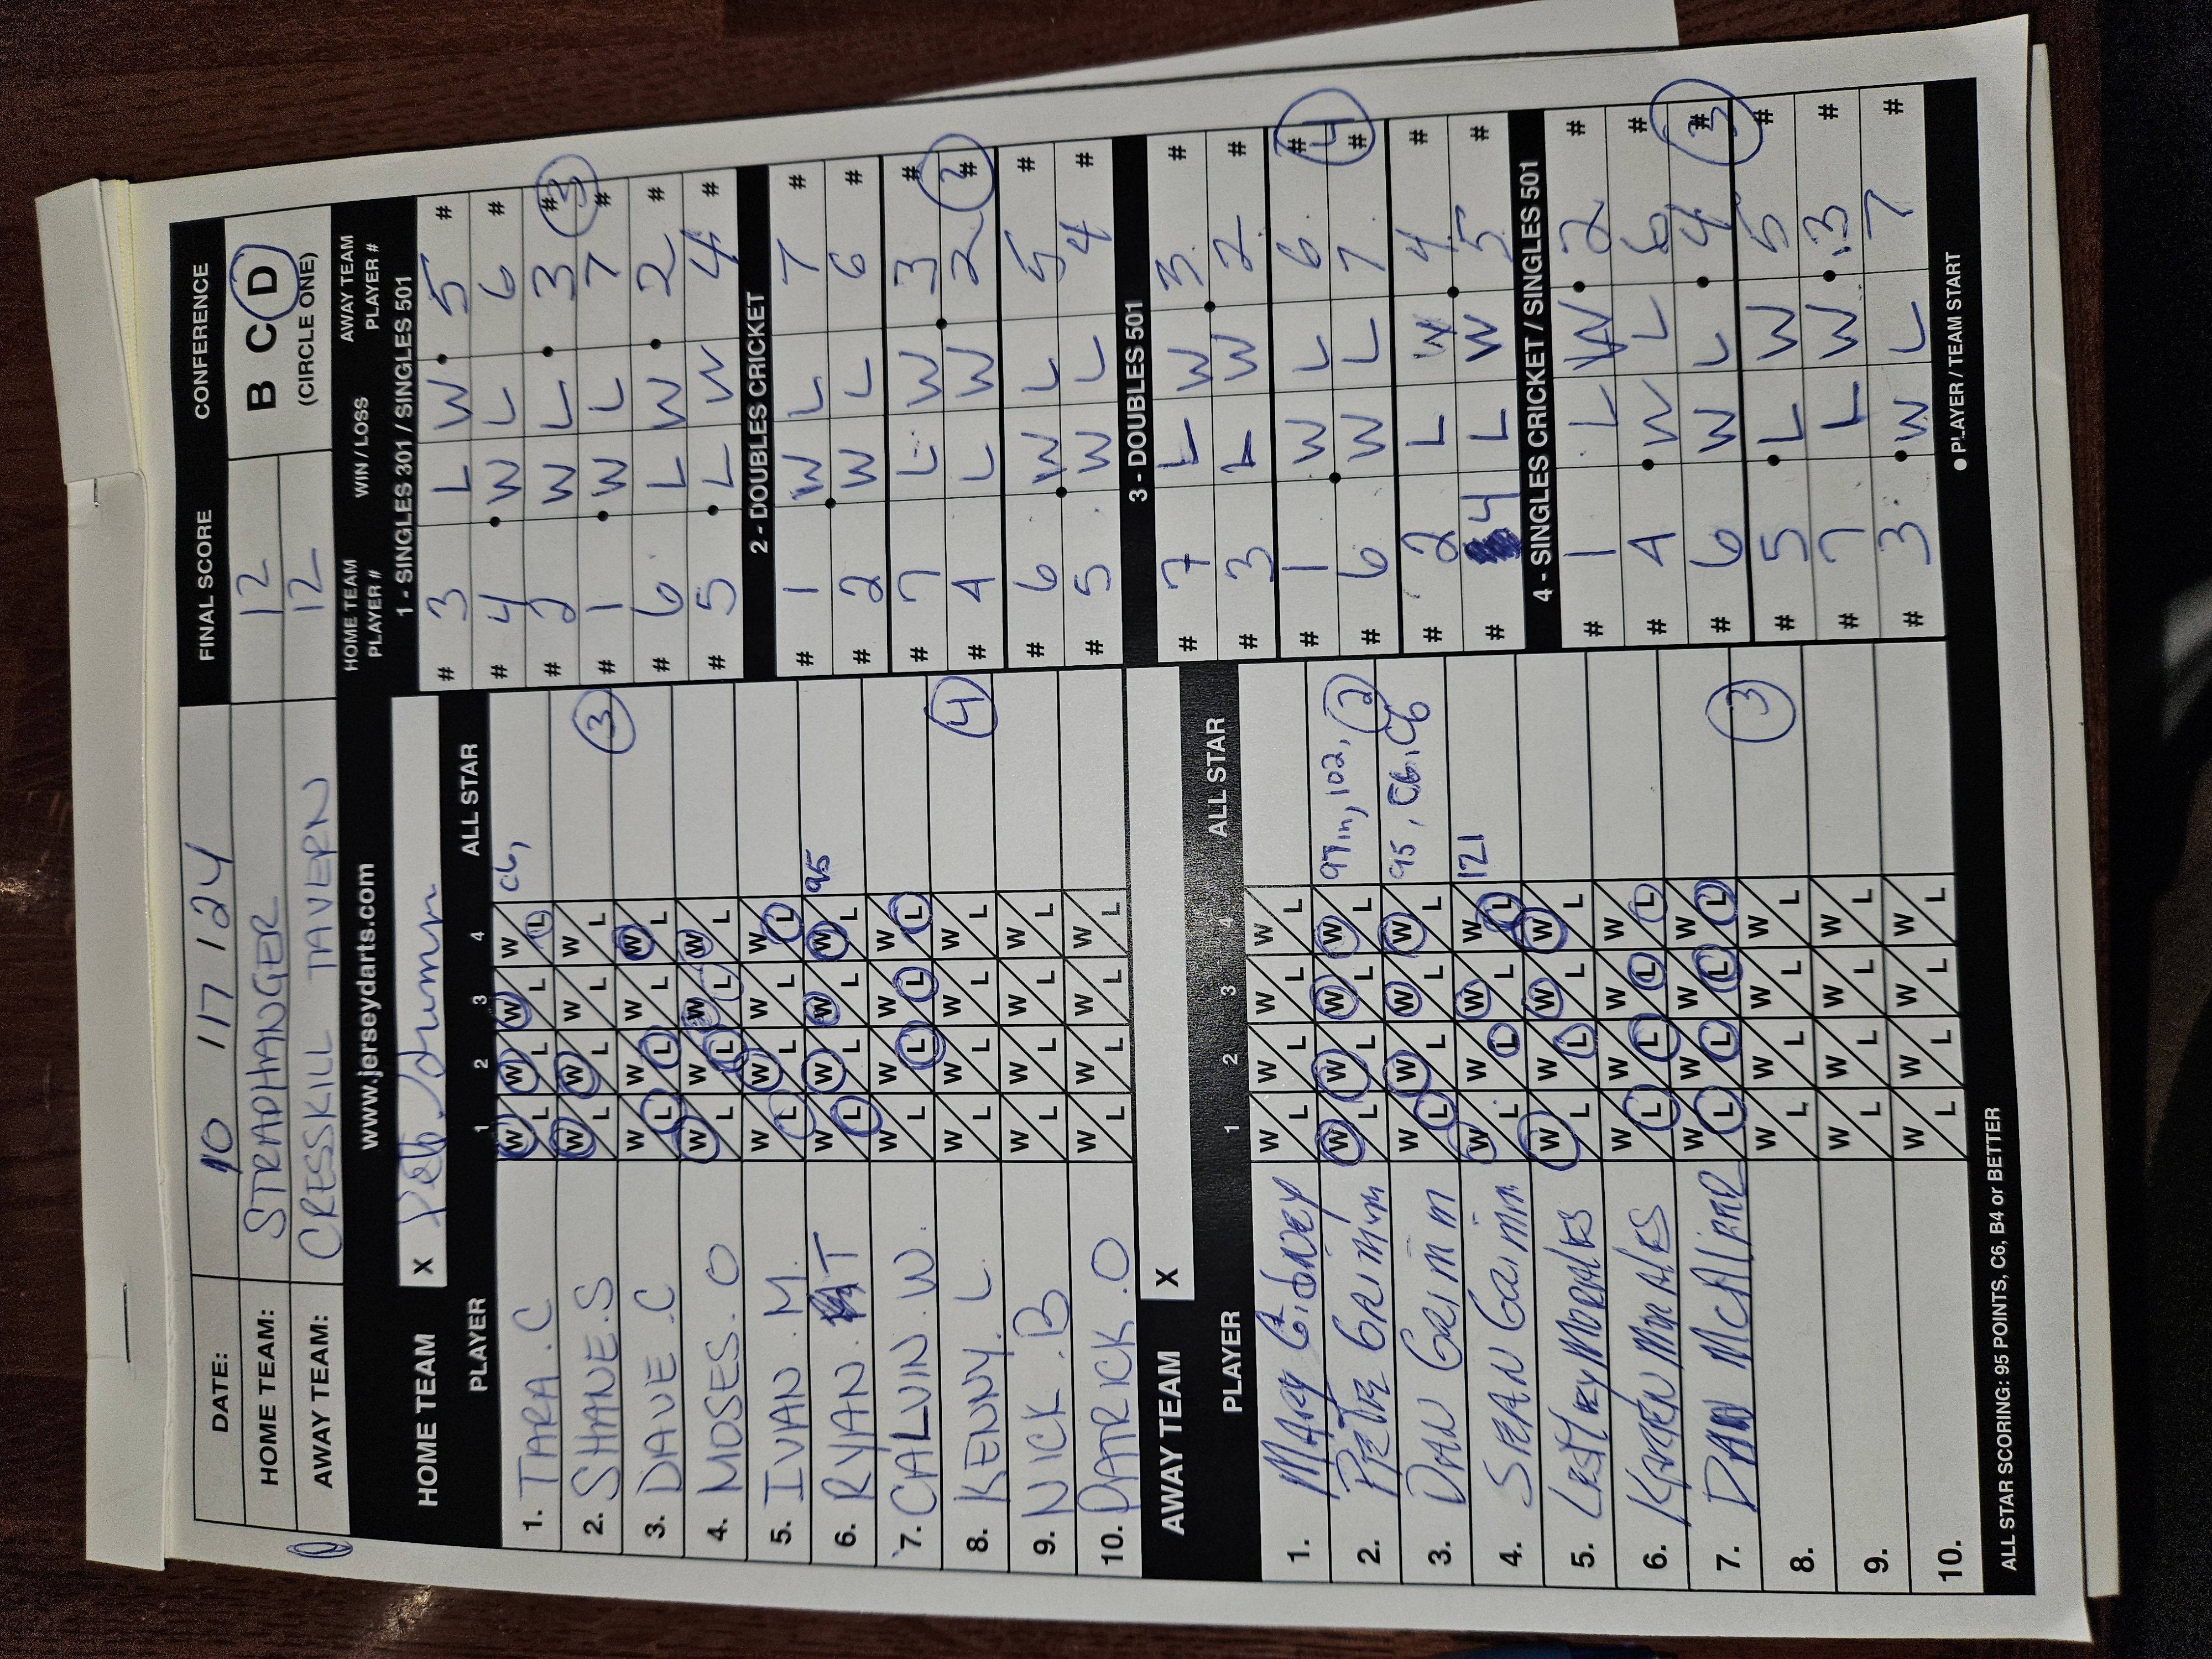 DATE: 10 117 124 FINAL SCORE CONFERENCE
HOME TEAM: STRAPHANGER 12 B C D
AWAY TEAM: CRESSKILL TAVERN 12 (CIRCLE ONE)
www.jerseydarts.com
HOME TEAM X
PLAYER 1 2 3 4 ALL STAR
1. TARA.C W L W L W L W L C6,
2. SHANE.S W L W L W L W L 3
3. DAVE.C W L W L W L W L
4. MOSES.O W L W L W L W L
5. IVAN.M. W L W L W L W L
6. RYAN. T W L W L W L W L 95
7. CALVIN.W. W L W L W L W L
8. KENNY.L W L W L W L W L 4
9. NICK.B W L W L W L W L
10. PATRICK.O W L W L W L W L
AWAY TEAM X
PLAYER 1 2 3 4 ALL STAR
1. MARY W L W L W L W L
2. PETE GRIMM W L W L W L W L 97in, 102, 2
3. DAN GRIMM W L W L W L W L 95, C6, C6
4. SEAN GRIMM W L W L W L W L 121
5. LESTLEY MORALES W L W L W L W L
6. KAREN MORALES W L W L W L W L
7. DAN McALEER W L W L W L W L 3
8. W L W L W L W L
9. W L W L W L W L
10. W L W L W L W L
ALL STAR SCORING: 95 POINTS, C6, B4 or BETTER
HOME TEAM PLAYER # WIN / LOSS AWAY TEAM PLAYER #
1 - SINGLES 301 / SINGLES 501
# 3 L W 5 #
# 4 W L 6 #
# 2 W L 3 # 3
# 1 W L 7 #
# 6 L W 2 #
# 5 L W 4 #
2 - DOUBLES CRICKET
# 1 W L 7 #
# 2 W L 6 #
# 7 L W 3 #
# 4 L W 2 # 2
# 6 W L 5 #
# 5 W L 4 #
3 - DOUBLES 501
# 7 L W 3 #
# 3 L W 2 #
# 1 W L 6 # 4
# 6 W L 7 #
# 2 L W 4 #
# 4 L W 5 #
4 - SINGLES CRICKET / SINGLES 501
# 1 L W 2 #
# 4 W L 6 #
# 6 W L 4 # 3
# 5 L W 5 #
# 7 L W 3 #
# 3 W L 7 #
● PLAYER / TEAM START